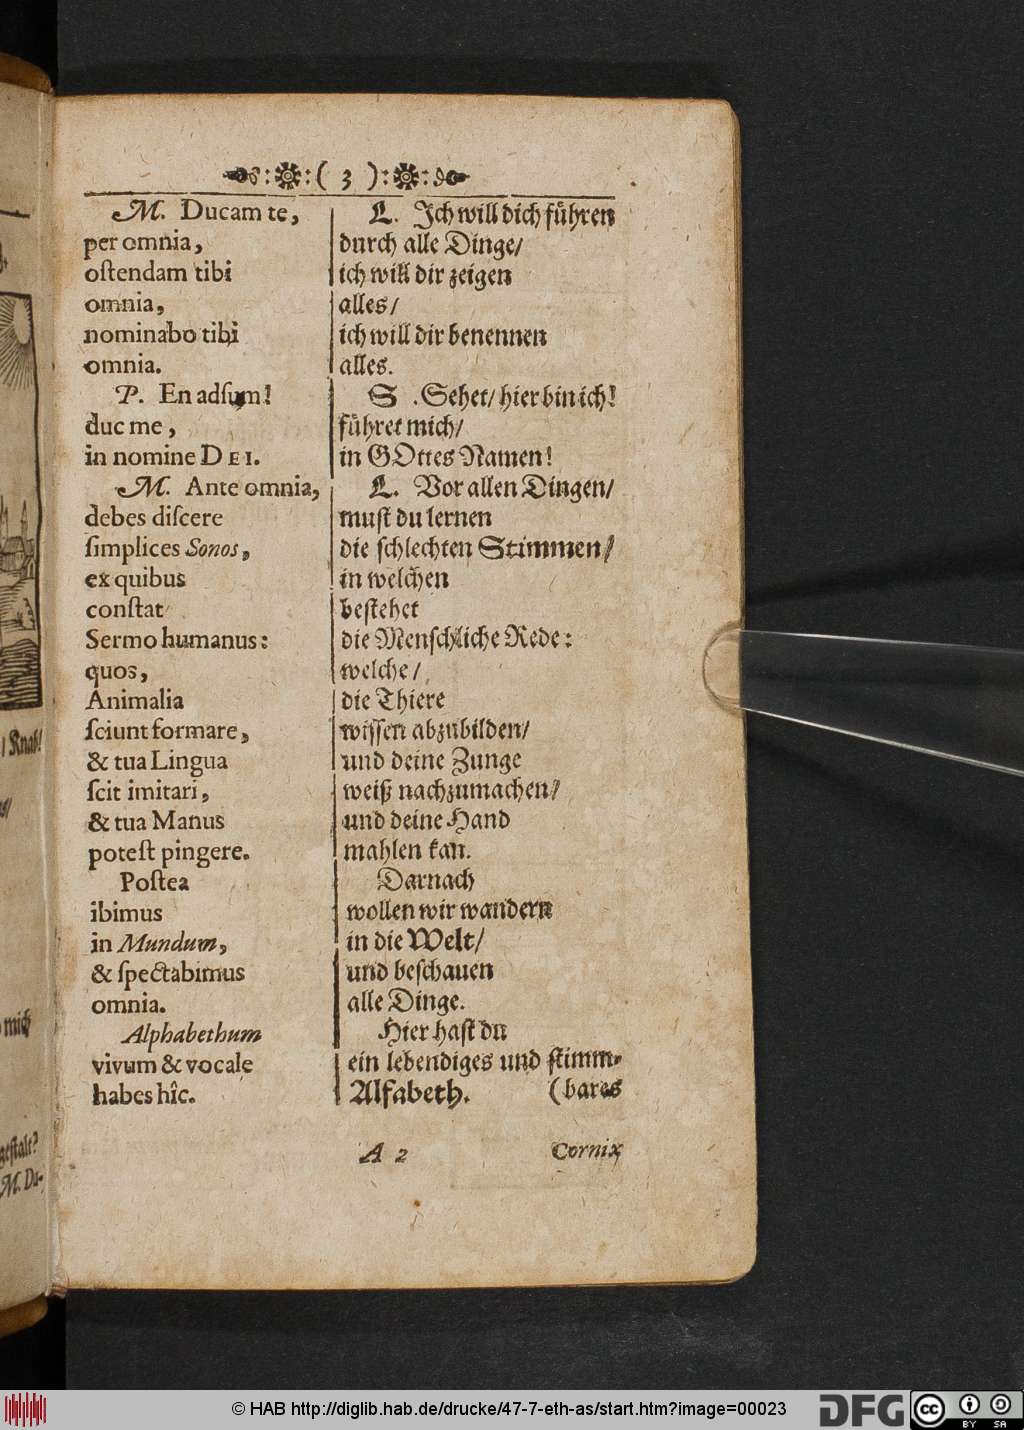 ( 3 )
M. Ducam te,
per omnia,
oſtendam tibi
omnia,
nominabo tibi
omnia.
P. En adſum!
duc me,
in nomine DEI.
M. Ante omnia,
debes diſcere
ſimplices Sonos,
ex quibus
conſtat
Sermo humanus:
quos,
Animalia
ſciunt formare,
& tua Lingua
ſcit imitari,
& tua Manus
poteſt pingere.
Poſtea
ibimus
in Mundum,
& ſpectabimus
omnia.
Alphabethum
vivum & vocale
habes hîc.
L. Ich will dich führen
durch alle Dinge/
ich will dir zeigen
alles/
ich will dir benennen
alles.
S. Sehet/ hier bin ich!
führet mich/
in GOttes Namen!
L. Vor allen Dingen/
muſt du lernen
die ſchlechten Stimmen/
in welchen
beſtehet
die Menſchliche Rede:
welche/
die Thiere
wiſſen abzubilden/
und deine Zunge
weiß nachzumachen/
und deine Hand
mahlen kan.
Darnach
wollen wir wandern
in die Welt/
und beſchauen
alle Dinge.
Hier haſt du
ein lebendiges und ſtimm-
Alfabeth. (bares
A 2 Cornix
Knab/
mich
geſtalt?
M. Du-
© HAB http://diglib.hab.de/drucke/47-7-eth-as/start.htm?image=00023
DFG
cc BY SA